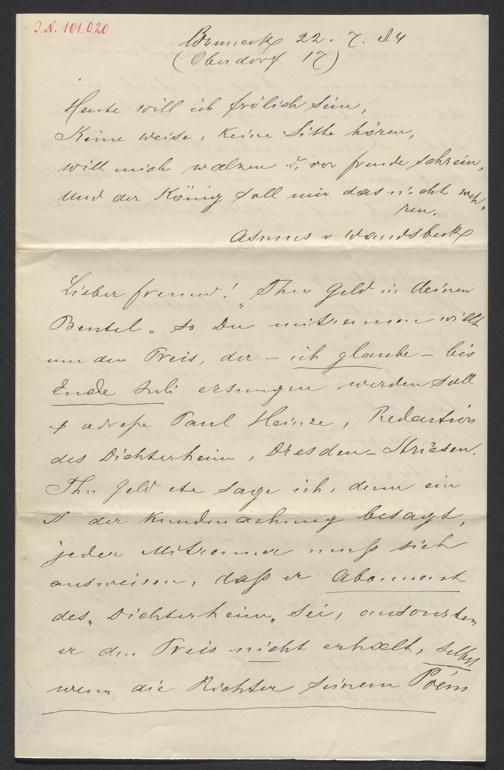 J.N. 101.020
Bruneck 22. 7. 84
(Oberdorf 17)
Heute will ich frölich sein,
Keine weise, keine Sitte hören,
will mich wälzen u. vor freude schrein,
und der König soll mir das nicht weh-
ren.
Asmus v Wandsbeck
Lieber freund! "Thu Geld in deinen
Beutel" so Du mitrennen willst
um den Preis, der – ich glaube – bis
Ende Juli ersungen werden soll
adresse Paul Heinze, Redaction
des Dichterheim, Dresden-Striesen.
Thu Geld etc sage ich, denn ein
§ der Kundmachung besagt,
jeder Mitrenner muß sich
ausweisen, daß er Abonnent
des "Dichterheim" sei, ansonsten
er den Preis nicht erhælt, selbst
wenn die Richter seinem Poém